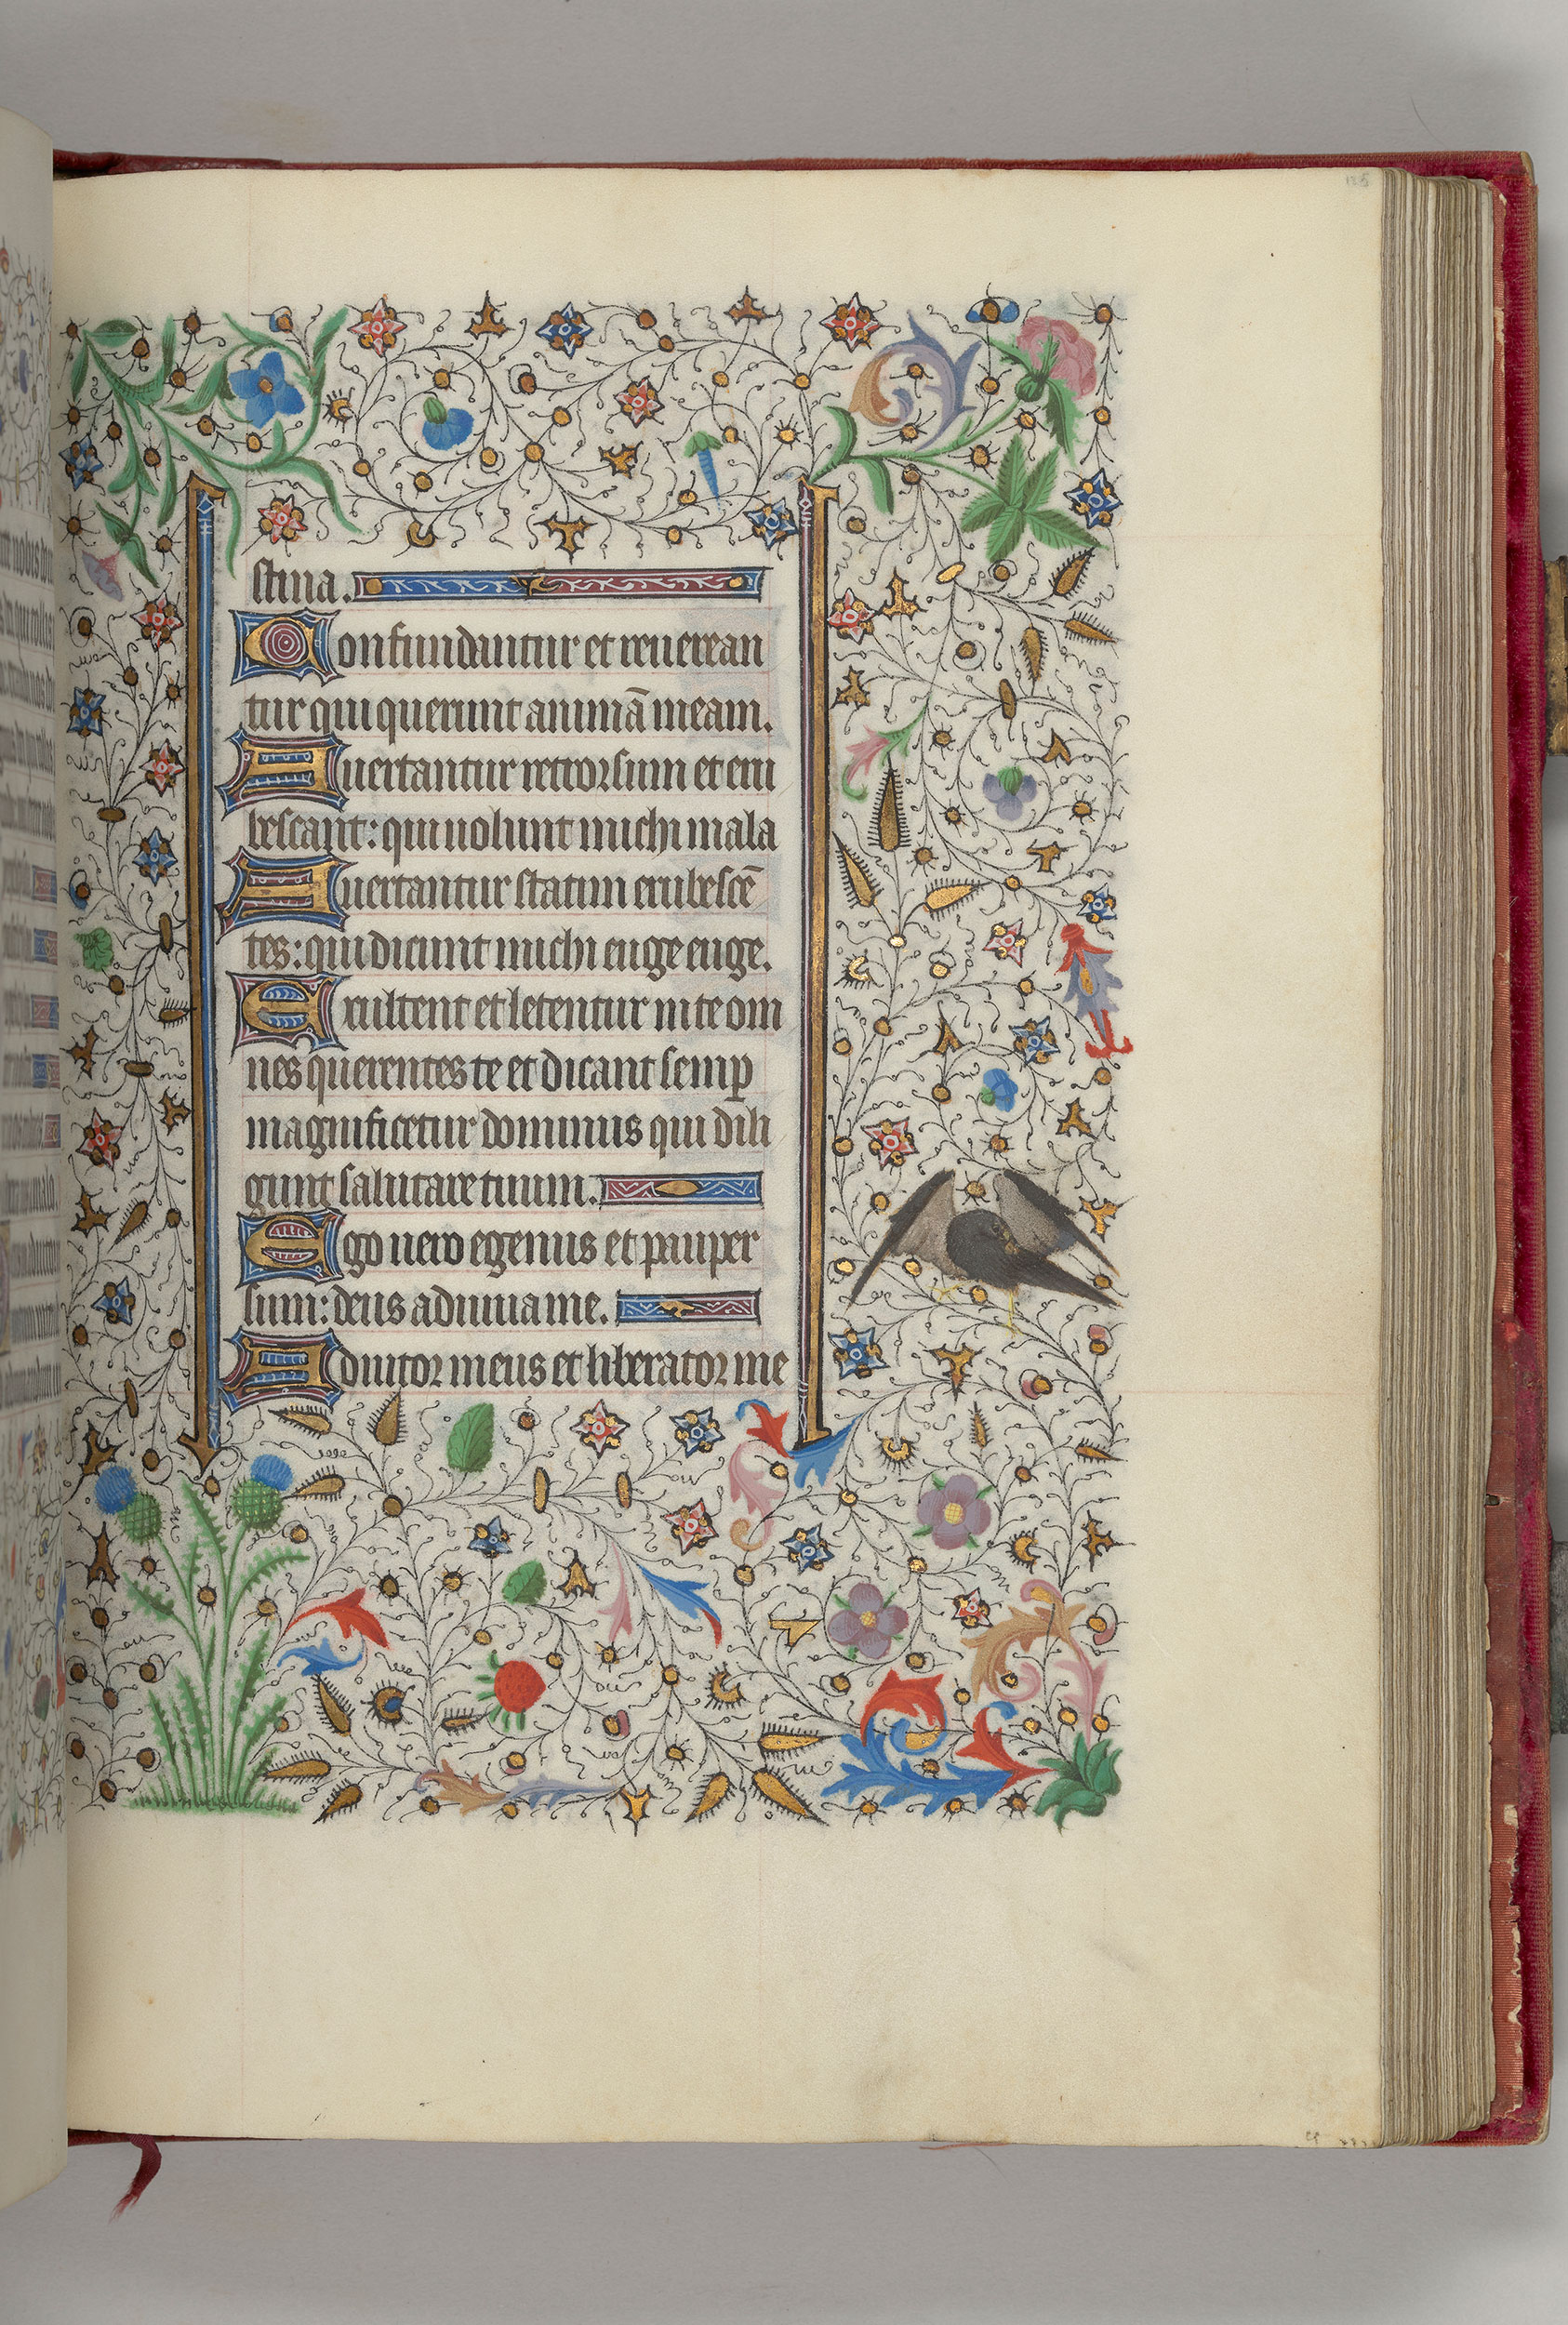 stina.
Confundantur et reuerean
tur qui querunt animā meam.
Auertantur retrorsum et eru
bescant: qui uolunt michi mala
Auertantur statim erubescē
tes: qui dicunt michi euge euge.
Exultent et letentur in te om
nes querentes te et dicant semp
magnificetur dominus qui dili
gunt salutare tuum.
Ego uero egenus et pauper
sum: deus adiuua me.
Adiutor meus et liberator me